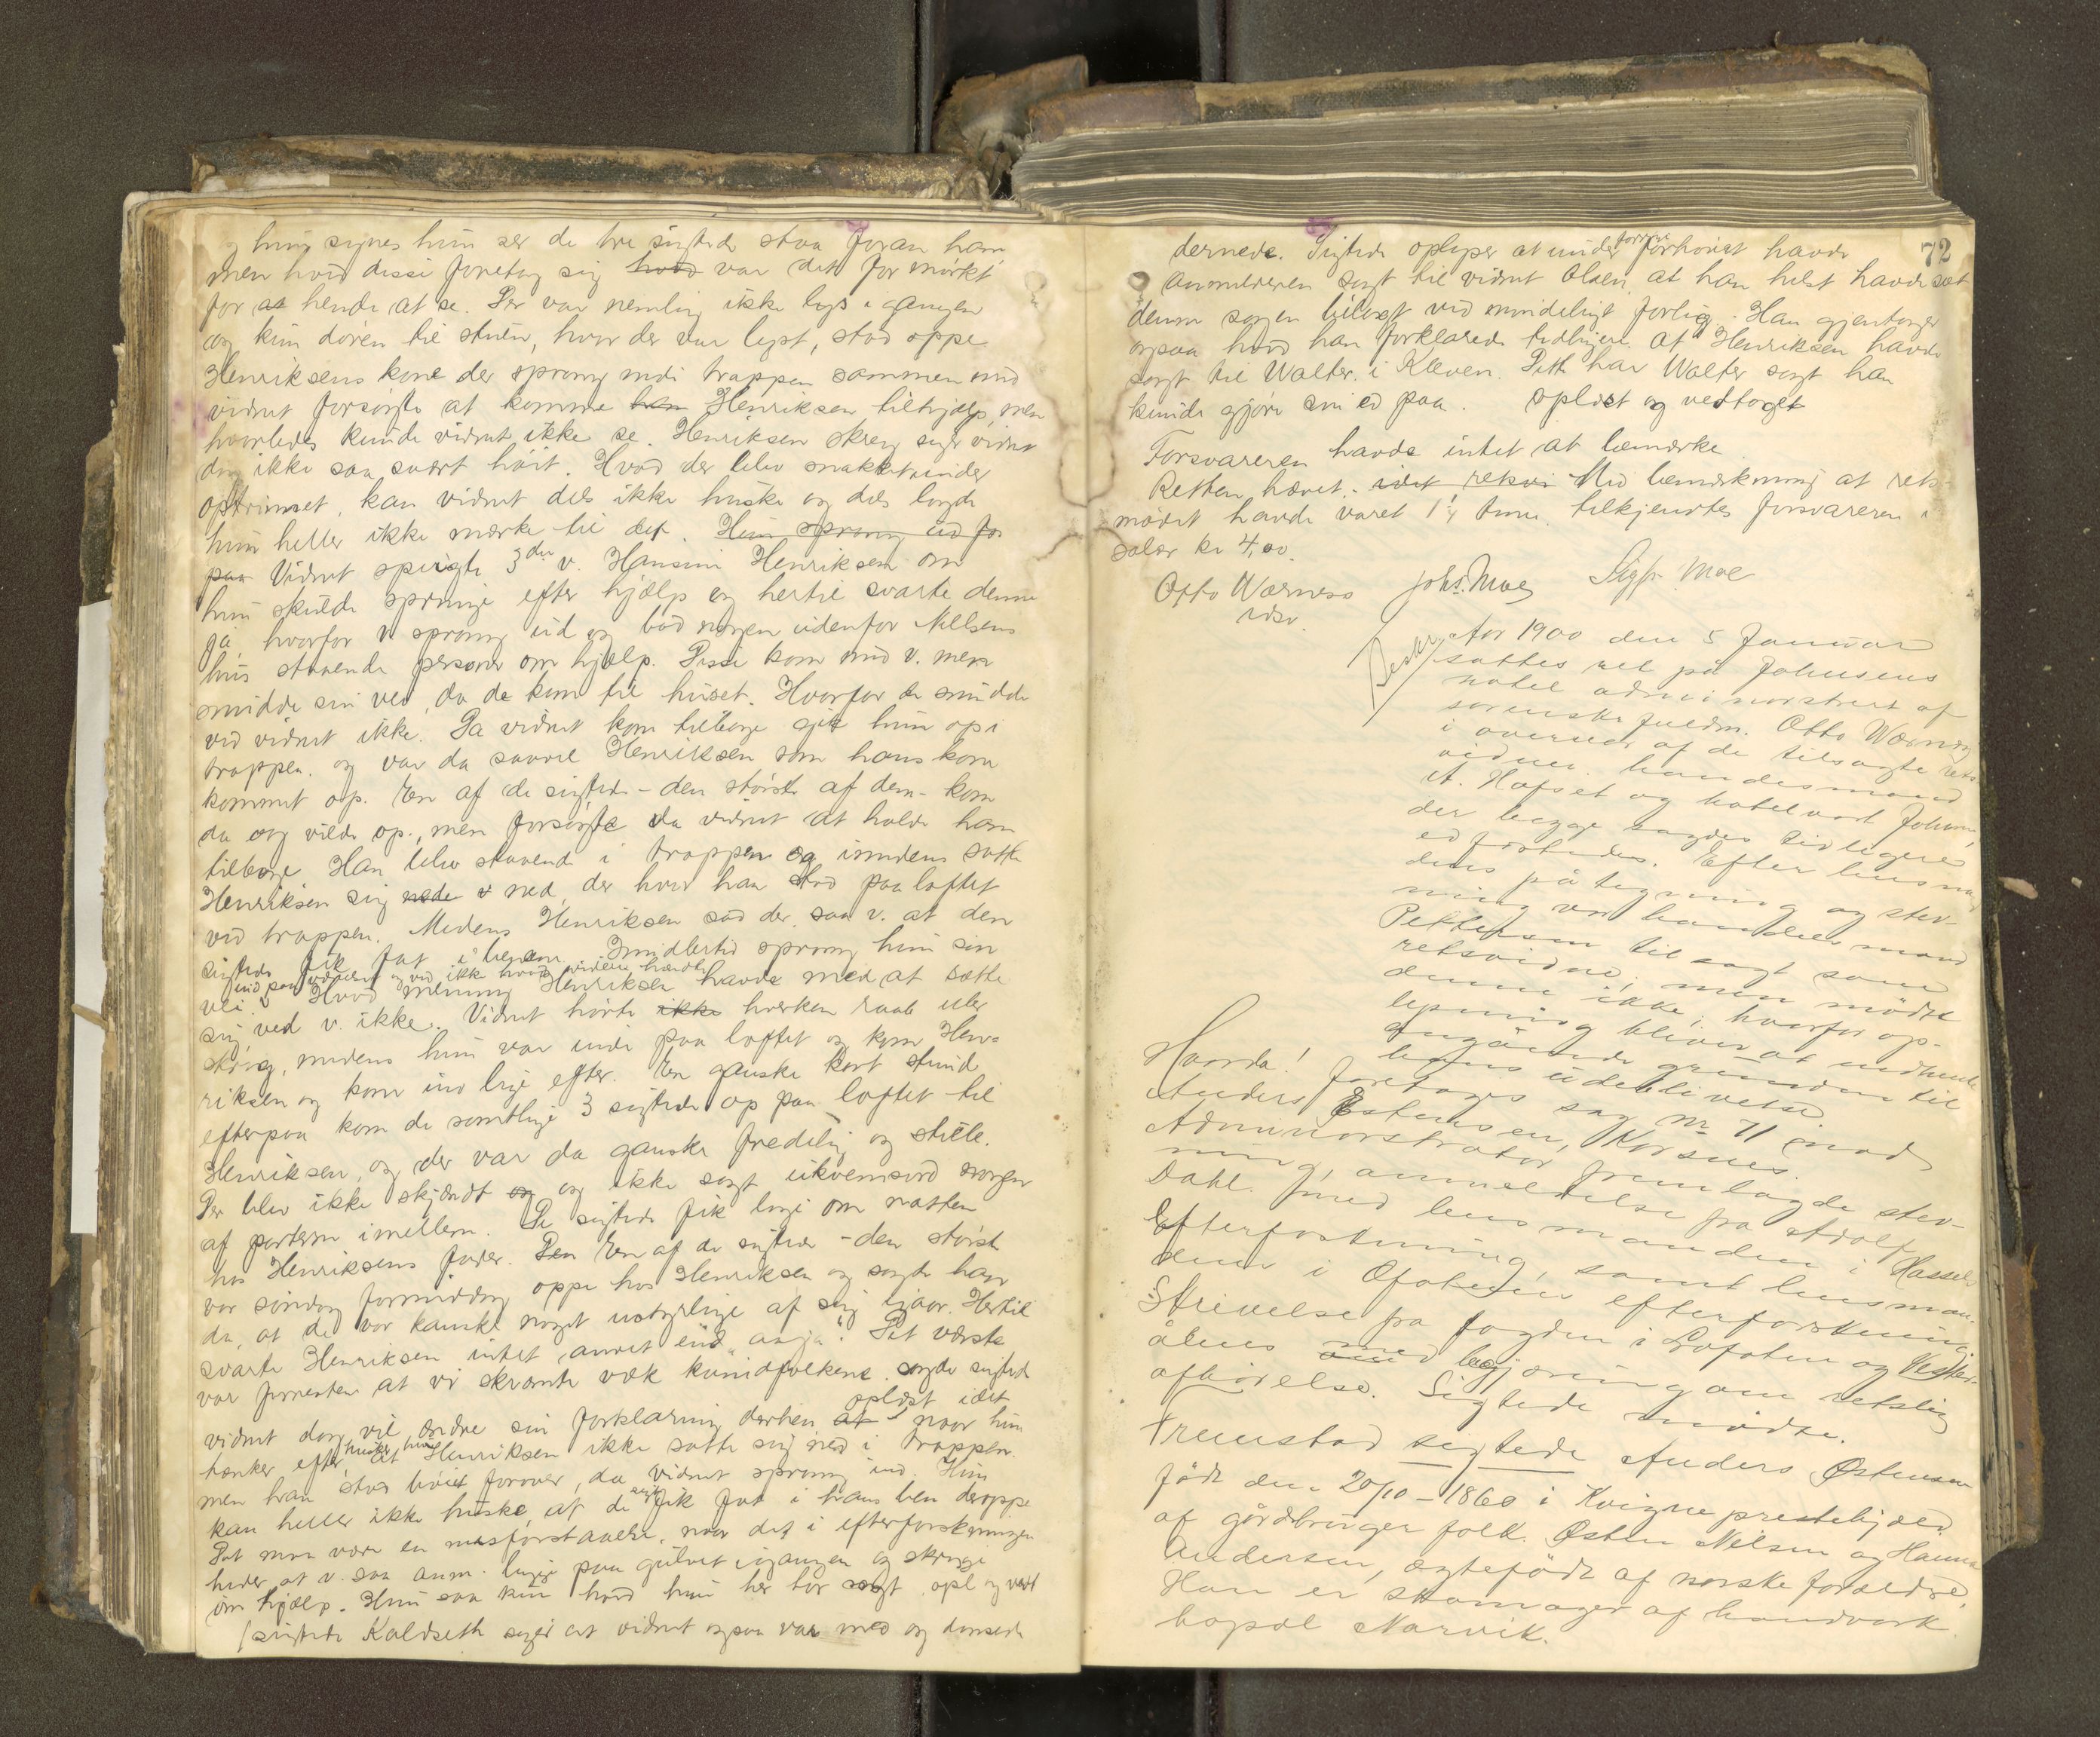 og hun synes hun ser de tre sigtede staa foran ham
men hvad disse foretog sig hvad var det for mørkt
for at hende at se. Der var nemlig ikke lys i gangen
og kun døren til stuen, hvor der var lyst, stod oppe
Henriksens kone der sprang ned i trappen sammen med
vidnet forsøgte at komme ham Henriksen tilhjælp, men
hvorledes kunde vidnet ikke se. Henriksen skreg siger vidnet
dog ikke saa svært høit. Hvad der blev snakket under
optrinnet, kan vidnet dels ikke huske og dels lagde
hun heller ikke mærke til det. Hun sprang ud for
paa Vidnet spurgte 3die v. Hansine Henriksen om
hun skulde springe efter hjælp og hertil svarte denne
ja, hvorfor v. sprang ud og bad nogen udenfor Nilsens
hus staaende personer om hjælp. Disse kom med v. men
snudde sin vei, da de kom til huset. Hvorfor de snudde
ved vidnet ikke. Da vidnet kom tilbage gik hun op i
trappen. og var da saavel Henriksen som hans kone
kommet op. En af de sigtede - den største af dem - kom
da og vilde op, men forsøgte da vidnet at holde ham
tilbage Han blev staaende i trappen og imidens satte
Henriksen sig nede v ned, der hvor han stod paa loftet
ved trappen. Medens Henriksen sad der saa v. at den
sigtede fik fat i benene. Imidlertid sprang hun sin
ind paa værelset og ved ikke hvad videre hændte
vei. Hvad mening Henriksen havde med at sætte
sig, ved v. ikke. Vidnet hørte ikke hverken raab eller
skrig, medens hun var inde paa loftet og kom Hen-
riksen og kone ind lige efter. En ganske kort stund
efterpaa kom de samtlige 3 sigtede op paa loftet til
Henriksen, og der var da ganske fredelig og stille.
Der blev ikke skjændt og og ikke sagt ukvemsord nogen
af parterne imellem. De sigtede fik ligge om natten
hos Henriksens fader. Den En af de sigtede - den største
var søndag formiddag oppe hos Henriksen og sagde han
da, at de var kanske noget ustyrlige af sig igaar. Hertil
svarte Henriksen intet andet end "aa ja". Det værste
var forresten at vi skræmte væk kvindfolkene. sagde sigtede
oplæst idet
vidnet dog vil ændre sin forklaring derhen at naar hun
tænker efter husker hun at Henriksen ikke satte sig ned i trappen.
men han stod bøiet forover, da vidnet sprang ind. Hun
kan heller ikke huske, at de sigt. fik fat i hans ben deroppe
Det maa være en misforstaaelse, naar det i efterforskningen
heder at v. saa anm. ligge paa gulvet i gangen og skrige
om hjælp. Hun saa kun hvad hun her har sagt opl og vedt
sigtede Koldseth siger at vidnet ogsaa var med og dansede

72
dernede. Sigtede oplyser at under forrige forhøret havde
anmelderen sagt til vidnet Olsen at han helst havde sæt
denne sagen bilagt ved mindeligt forlig. Han gjentager
ogsaa hvad han forklarede tidligere at Henriksen havde
sagt til Walter i Kleven. Dette har Walter sagt han
kunde gjøre sin ed paa. oplæst og vedtaget
Forsvareren havde intet at bemærke
Retten hævet. idet retsvi Med bemærkning at rets-
mødet havde varet 1 1/4 time, tilkjendtes forsvareren i
salær kr 4,00.
Otto Wærness Johs. Moe Sigfr. Moe
edsv.
Beskr. Aar 1900 den 5 Januar
sattes ret på Johnsens
hotel administreret af
sorenskr fuldm. Otto Wærness
i overvær af de tilsagte rets
vidner handelsmand
A. Hafset og hotelvært Johnsen,
der begge aagdes tidligere
ed forstodes. Efter lensman
dens påtegning og stev-
ning var handelsmand
Pettersen tilsagt som
retsvidne, men mødte
denne ikke, hvorfor op-
lysning bliver at indhente
angående grunden til
hans udeblivelse.
Hvorda! foretages sag nr 71 mod
Anders Østensen, Korsnes.
Administrator fremlagde stev-
ning, anmeldelse fra Adolf
Dahl. med lensmanden i Hassel
Efterforskning, samt lensman
dens i Ofotens efterforskning.
Skrivelse fra fogden i Lofoten og Vester-
ålen med begjæring om retslig
afhørelse. Sigtede mødte.
Fremstod sigtede Anders Østensen
født den 20/10 - 1860 i Kvigne prestegjæld.
af gårdbruger folk. Østen Nilsen og Hanna
Andersen, ægtefødt af norske forældre.
Han er skomager af handværk
bopæl Narvik.